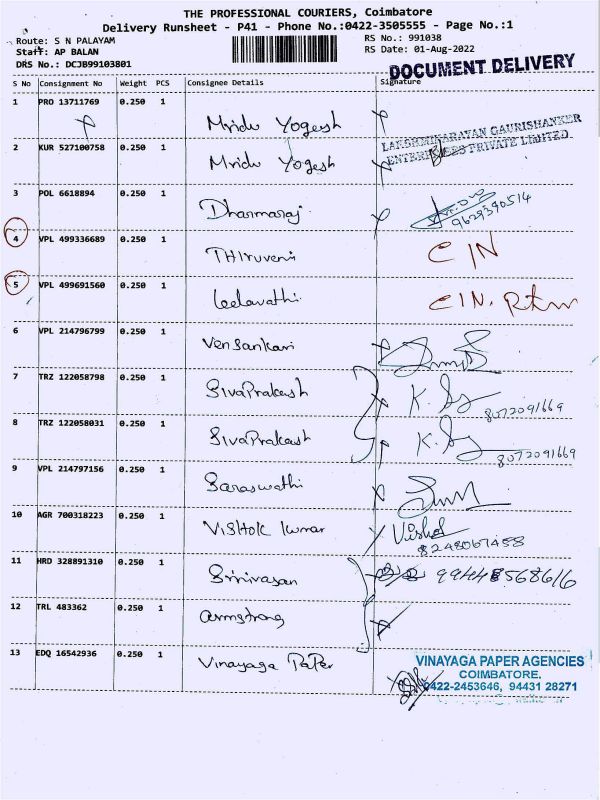 THE PROFESSIONAL COURIERS, Coimbatore
Delivery Runsheet - P41 - Phone No.:0422-3505555 - Page No.:1
Route: S N PALAYAM RS No.: 991038
Staff: AP BALAN RS Date: 01-Aug-2022
DRS No.: DCJB99103801
DOCUMENT DELIVERY
S No Consignment No Weight PCS Consignee Details Signature
1 PRO 13711769 0.250 1 Mridu Yogesh
LAKSHMINARAYAN GAURISHANKER
ENTERPRISES PRIVATE LIMITED.
2 KUR 527100758 0.250 1 Mridu Yogesh
3 POL 6618894 0.250 1 Dharmaraj 9629590514
4 VPL 499336689 0.250 1 Thiruveni CIN
5 VPL 499691560 0.250 1 Leelavathi CIN. Rtn
6 VPL 214796799 0.250 1 Vensankari
7 TRZ 122058798 0.250 1 SivaPrakash K. 8072091669
8 TRZ 122058031 0.250 1 SivaPrakash K. 8072091669
9 VPL 214797156 0.250 1 Saraswathi
10 AGR 700318223 0.250 1 Vishok Kumar Vishok
8248067458
11 HRD 328891310 0.250 1 Srinivasan
12 TRL 483362 0.250 1 armstrong
13 EDQ 16542936 0.250 1 Vinayaga PaPer
VINAYAGA PAPER AGENCIES
COIMBATORE.
0422-2453646, 94431 28271